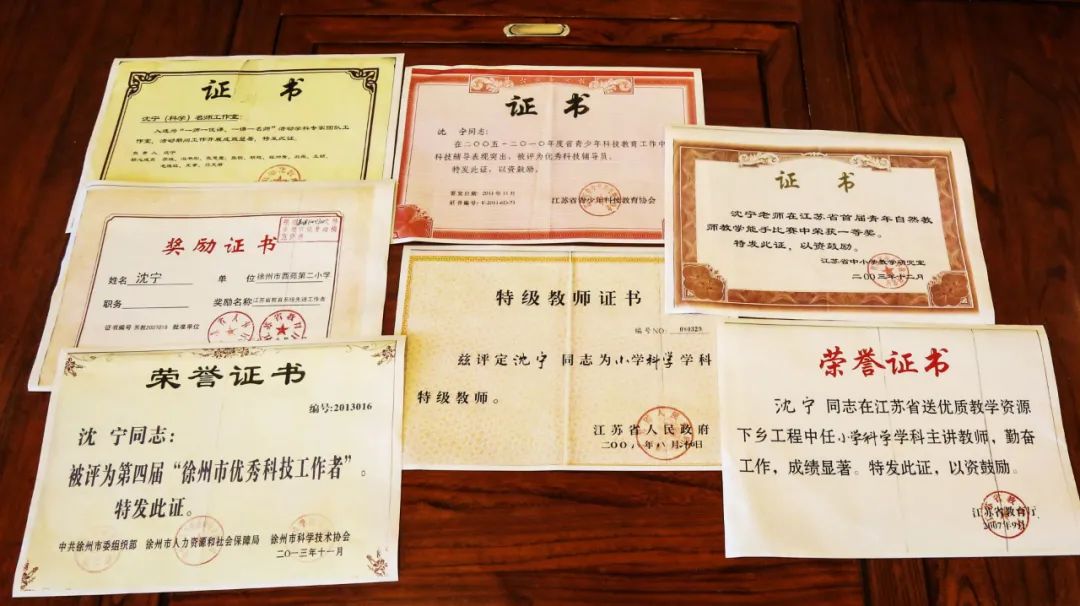 证 书
沈宁(科学)名师工作室:
入选为“一师一优课、一课一名师”活动学科专家团队工
作室,活动期间工作开展成效显著,特发此证。
负责人 沈宁
证 书
沈 宁同志:
在二〇〇五-二〇一〇年度省青少年科技教育工作中
科技辅导表现突出,被评为优秀科技辅导员。
特发此证,以资鼓励。
签发日期:2011年11月
证书编号:
江苏省青少年科技教育协会
证 书
沈宁老师在江苏省首届青年自然教
师教学能手比赛中荣获一等奖。
特发此证,以资鼓励。
江苏省中小学教学研究室
二〇〇三年十二月
奖励证书
姓名 沈宁 单 位 徐州市西苑第二小学
职务 奖励名称 江苏省教育系统先进工作者
证书编号 批准单位
特级教师证书
编号NO:
兹评定沈宁同志为小学科学学科
特级教师。
江苏省人民政府
荣誉证书
编号:2013016
沈 宁同志:
被评为第四届“徐州市优秀科技工作者”。
特发此证。
中共徐州市委组织部 徐州市人力资源和社会保障局 徐州市科学技术协会
二〇一三年十一月
荣誉证书
沈宁 同志在江苏省送优质教学资源
下乡工程中任小学科学学科主讲教师,勤奋
工作,成绩显著。特发此证,以资鼓励。
江苏省教育厅
2007年9月